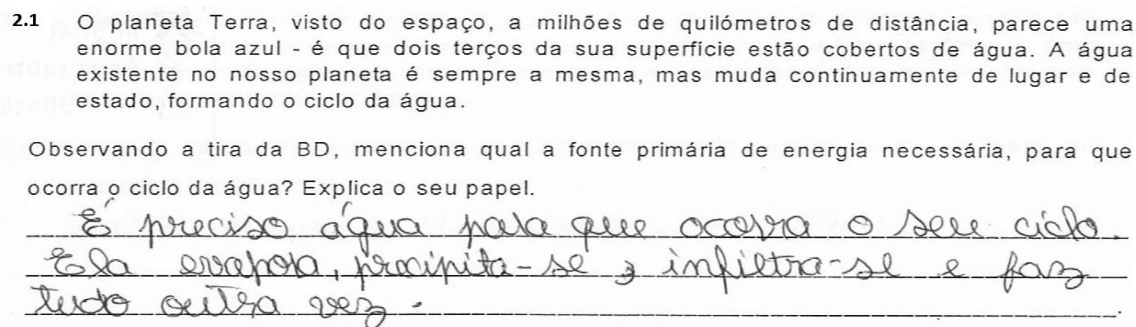 2.1 O planeta Terra, visto do espaço, a milhões de quilómetros de distância, parece uma
enorme bola azul - é que dois terços da sua superfície estão cobertos de água. A água
existente no nosso planeta é sempre a mesma, mas muda continuamente de lugar e de
estado, formando o ciclo da água.
Observando a tira da BD, menciona qual a fonte primária de energia necessária, para que
ocorra o ciclo da água? Explica o seu papel.
É preciso água para que ocorra o seu ciclo.
Ela evapora, precipita-se, infiltra-se e faz
tudo outra vez.